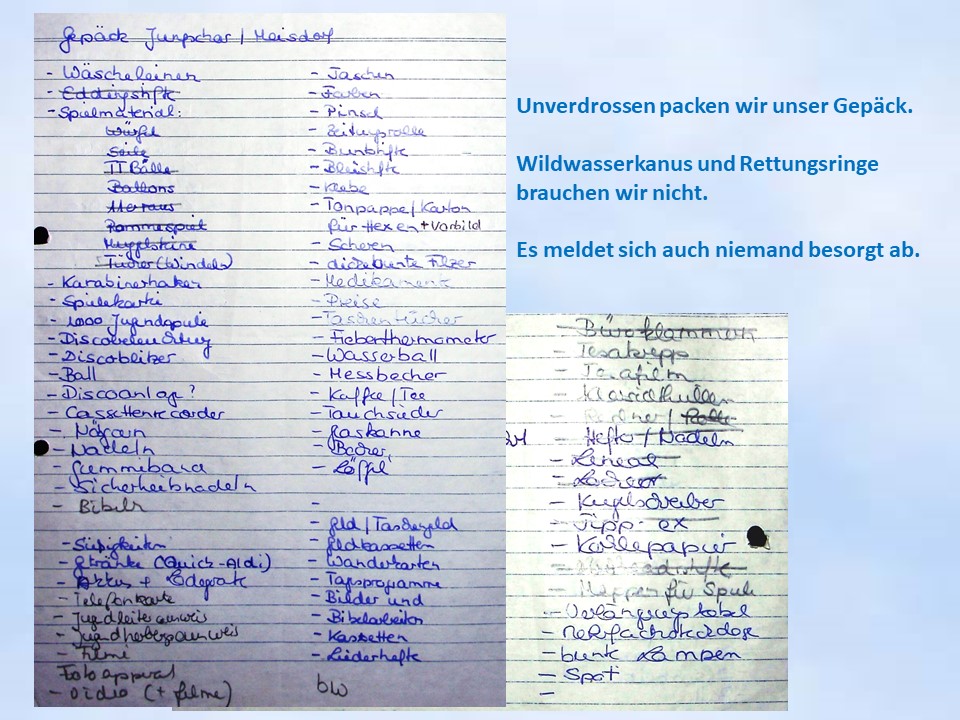 Gepäck Jungschar / Meisdorf
- Wäscheleinen
- Eddingstifte
- Spielmaterial:
Würfel
Seile
TT Bälle
Ballons
Pammesspiel
Muggelsteine
Tücher (Windeln)
- Karabinerhaken
- Spielekartei
- 1000 Jugendspiele
- Discobeleuchtung
- Discoblitzer
- Ball
- Discoanlage?
- Cassettenrecorder
- Nähgarn
- Nadeln
- Gummiband
- Sicherheitsnadeln
- Bibeln
- Süßigkeiten
- Getränke (Quick-Aldi)
- Akkus + Ladegerät
- Telefonkarte
- Jugendleiterausweis
- Jugendherbergsausweis
- Filme
Fotoapparat
- Video (+ Filme)
- Taschen
- Farben
- Pinsel
- Zeitungsrolle
- Buntstifte
- Bleistifte
- Klebe
- Tonpappe / Karton
für Hexen + Vorbild
- Scheren
- dicke bunte Filzer
- Medikamente
- Preise
- Taschentücher
- Fieberthermometer
- Wasserball
- Messbecher
- Kaffee / Tee
- Tauchsieder
- Gaskanne
- Becher,
- Löffel
-
- Geld / Taschengeld
- Geldkassetten
- Wanderkarten
- Tagsprogramme
- Bilder und
- Bibelarbeiten
- Kassetten
- Liederhefte
bw
Unverdrossen packen wir unser Gepäck.
Wildwasserkanus und Rettungsringe
brauchen wir nicht.
Es meldet sich auch niemand besorgt ab.
- Büroklammern
- Tesakrepp
- Tesafilm
- Klarsichthüllen
- Hefter / Nadeln
- Lineal
- Locher
- Kugelschreiber
- Tipp-ex
- Kohlepapier
- Mappen für Spiele
- Verlängerungskabel
- Mehrfachsteckdose
- bunte Lampen
- Spot
-